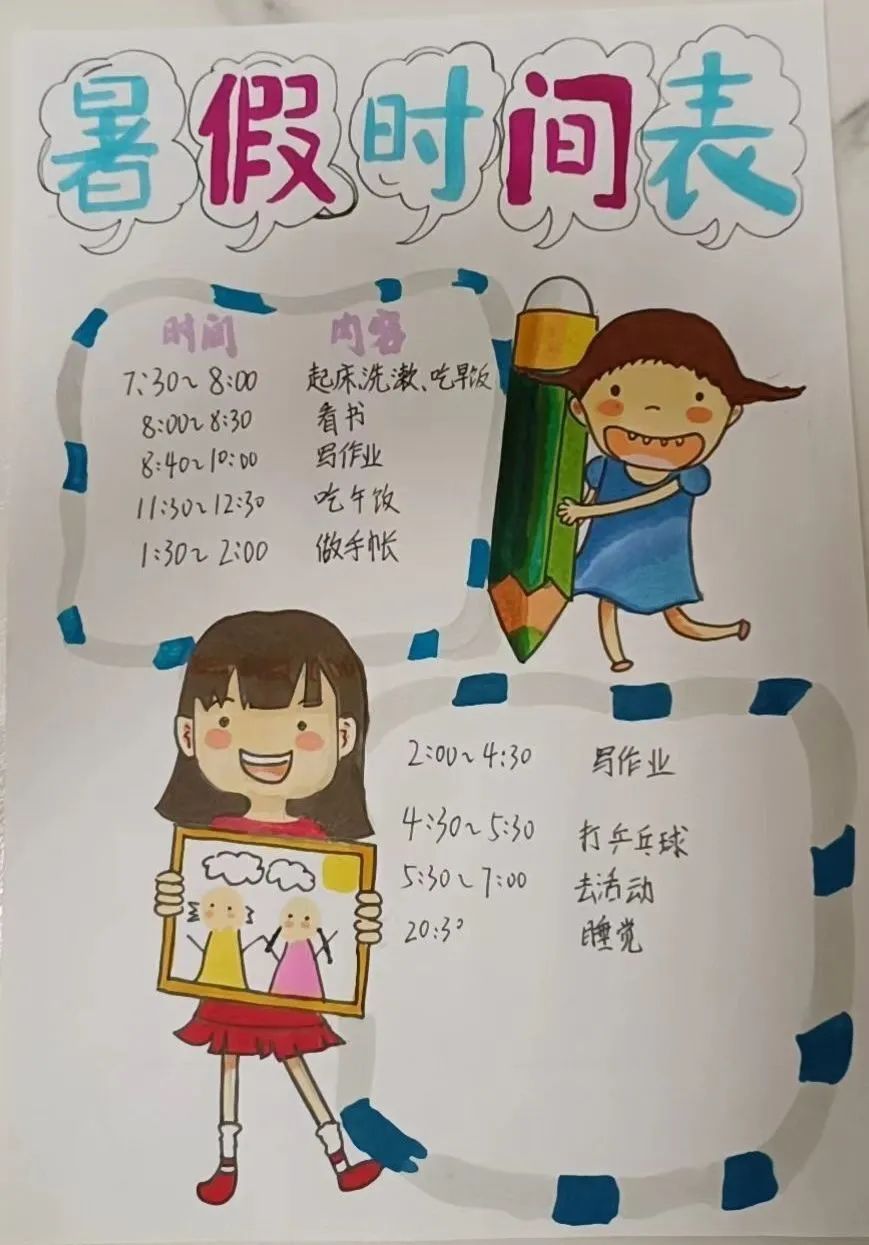 暑假时间表
时间 内容
7:30~8:00 起床、洗漱、吃早饭
8:00~8:30 看书
8:40~10:00 写作业
11:30~12:30 吃午饭
1:30~2:00 做手帐
2:00~4:30 写作业
4:30~5:30 打乒乓球
5:30~7:00 去活动
20:30 睡觉